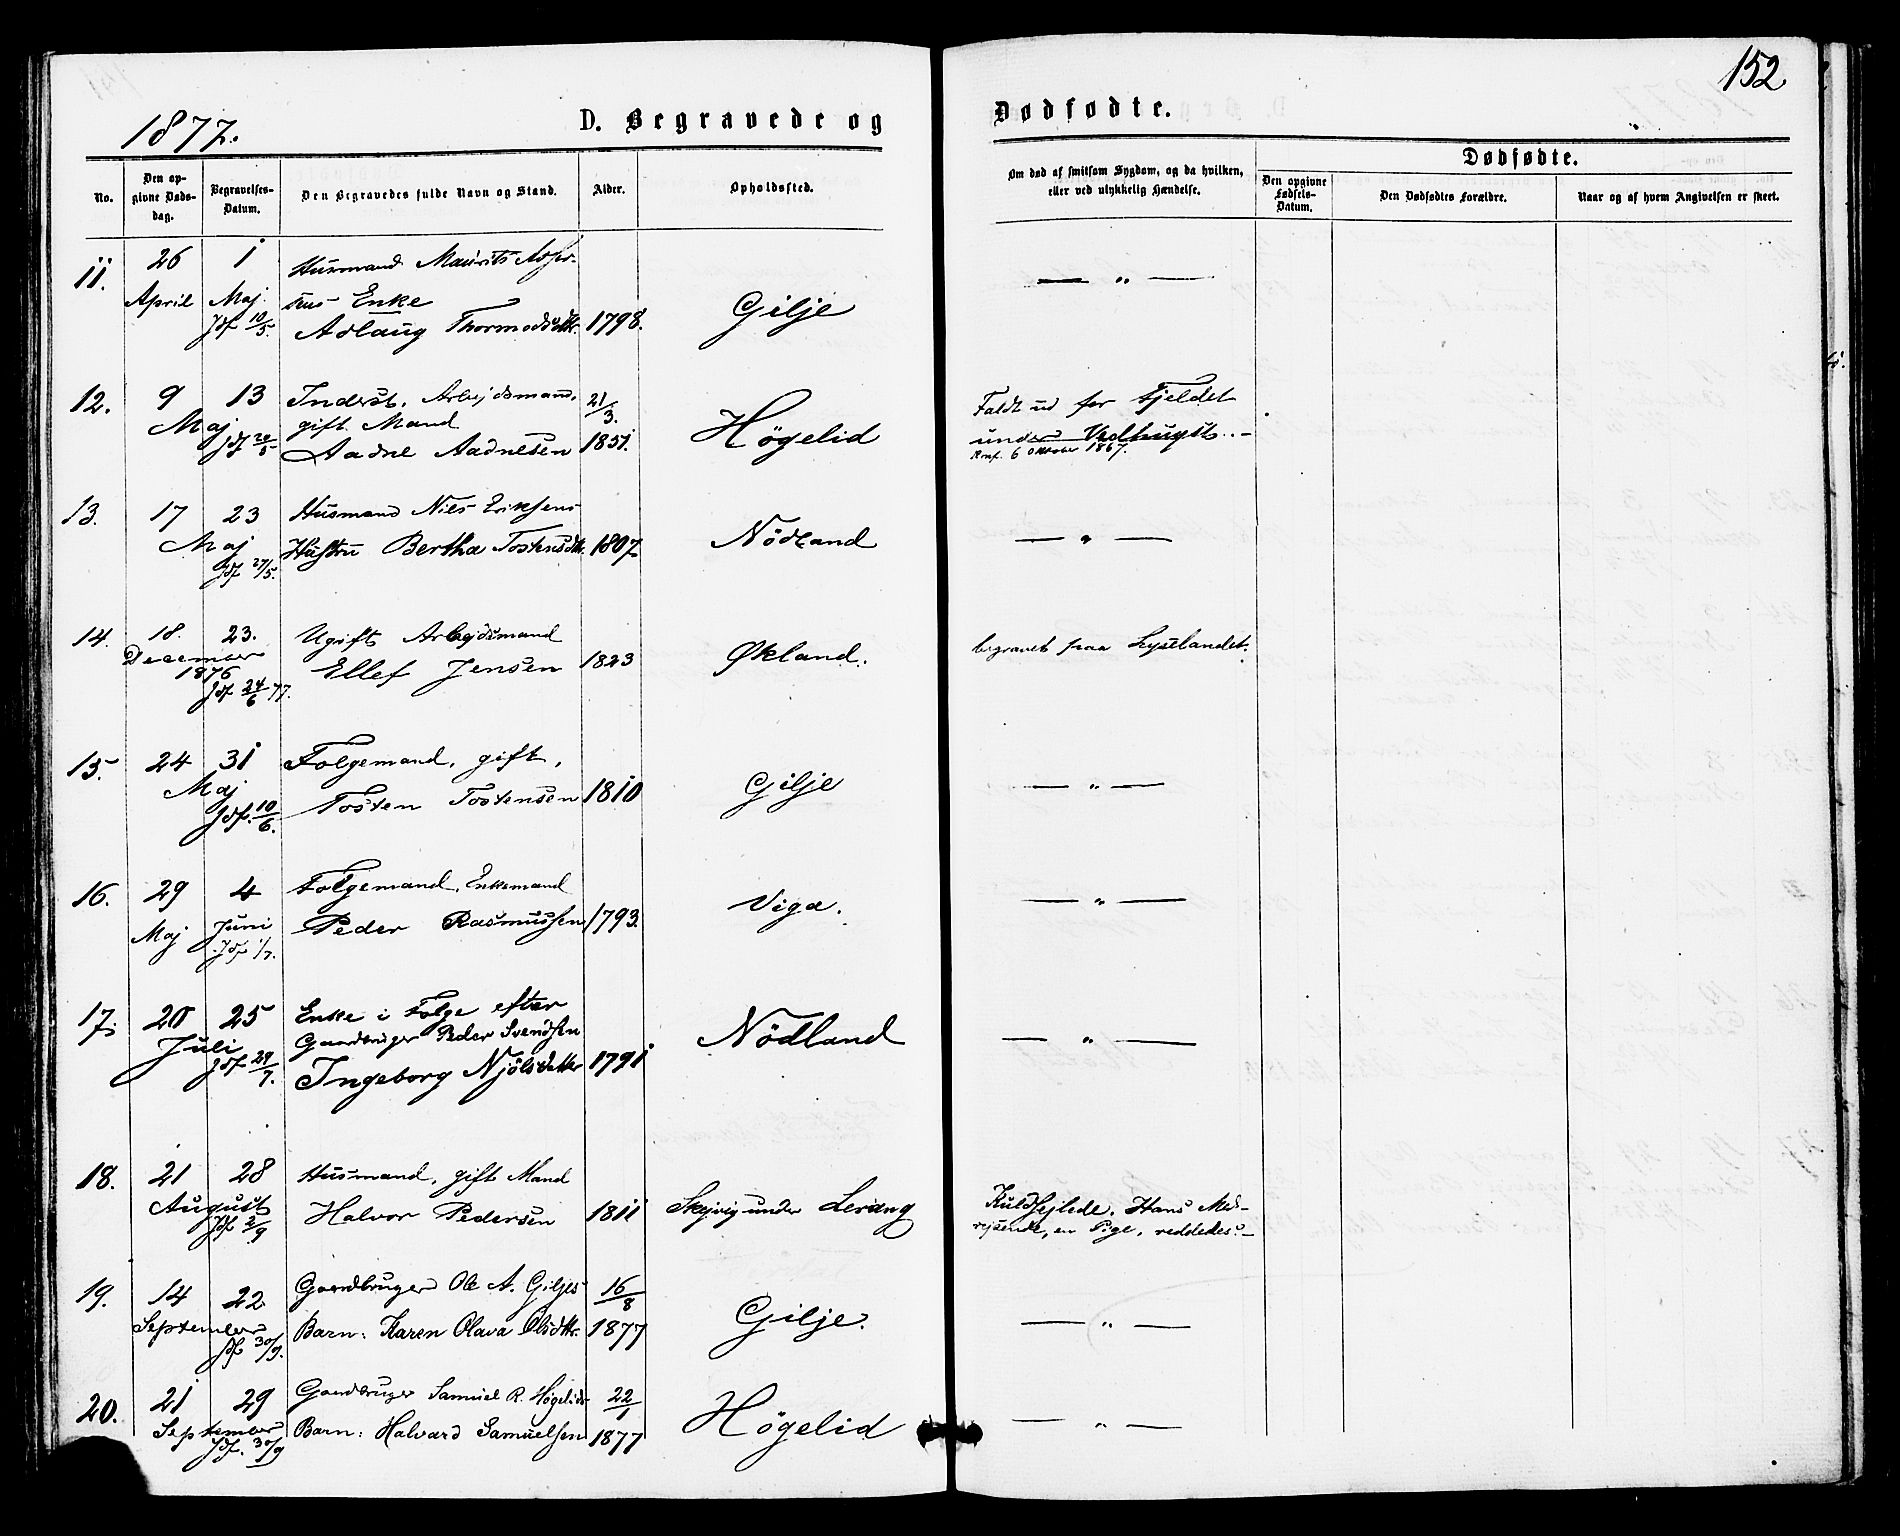 152
1877.
D. Begravede og Dødfødte.
No.
Den opgivne Dødsdag.
Begravelses-Datum.
Den Begravedes fulde Navn og Stand.
Alder.
Opholdssted.
Om død af smitsom Sygdom, og da hvilken, eller ved ulykkelig Hændelse.
Dødfødte.
Den opgivne Fødsels-Datum.
Den Dødfødtes Forældre.
Naar og af hvem Angivelsen er skeet.
11. 26 April 1 Maj Jdf 10/5.
Husmand Maurits
Enke
Aslaug Thormodsdtr. 1798. Gilje — " —
12. 9 Maj 13 Jdf 20/5
Inderst. Arbejdsmand, 21/3.
gift Mand
Aadne Aadnesen 1851. Högelid
Faldt ud for Fjeldet
under Vedhugst. –
Konf. 6 Oktober 1867.
13. 17 Maj 23 Jdf 27/5.
Husmand Niels Eriksens
Hustru Bertha Tostensdtr. 1807 Nödland — " —
14. 18. December 1876 23. Jdf 24/6 77.
Ugift Arbejdsmand
Ellef Jensen 1823 Økland. begravet paa Lyselandet.
15. 24 Maj 31 Jdf. 10/6.
Folgemand, gift,
Tosten Tostensen 1810 Gilje — " —
16. 29 Maj 4 Juni Jdf 1/7.
Folgemand, Enkemand
Peder Rasmussen 1793. Viga. — " —
17. 20 Juli 25 Jdf 29/7.
Enke i Folge efter
Gaardbruger Peder Svendsen
Ingeborg Njölsdatter 1791 Nödland — " —
18. 21 August 28 Jdf 2/9
Husmand, gift Mand
Halvor Pedersen 1811 Skejvig under Lerang
Kuldsejlede. Hans Med-
rejsende, en Pige, reddedes. –
19. 14 September 22 Jdf 30/9.
Gaardbruger Ole A. Giljes 16/8
Barn: Karen Olava Olsdtr. 1877 Gilje. — " —
20. 21 September 29 Jdf. 30/9
Gaardbruger Samuel R. Høgelids 22/1
Barn: Halvard Samuelsen 1877 Högelid — " —